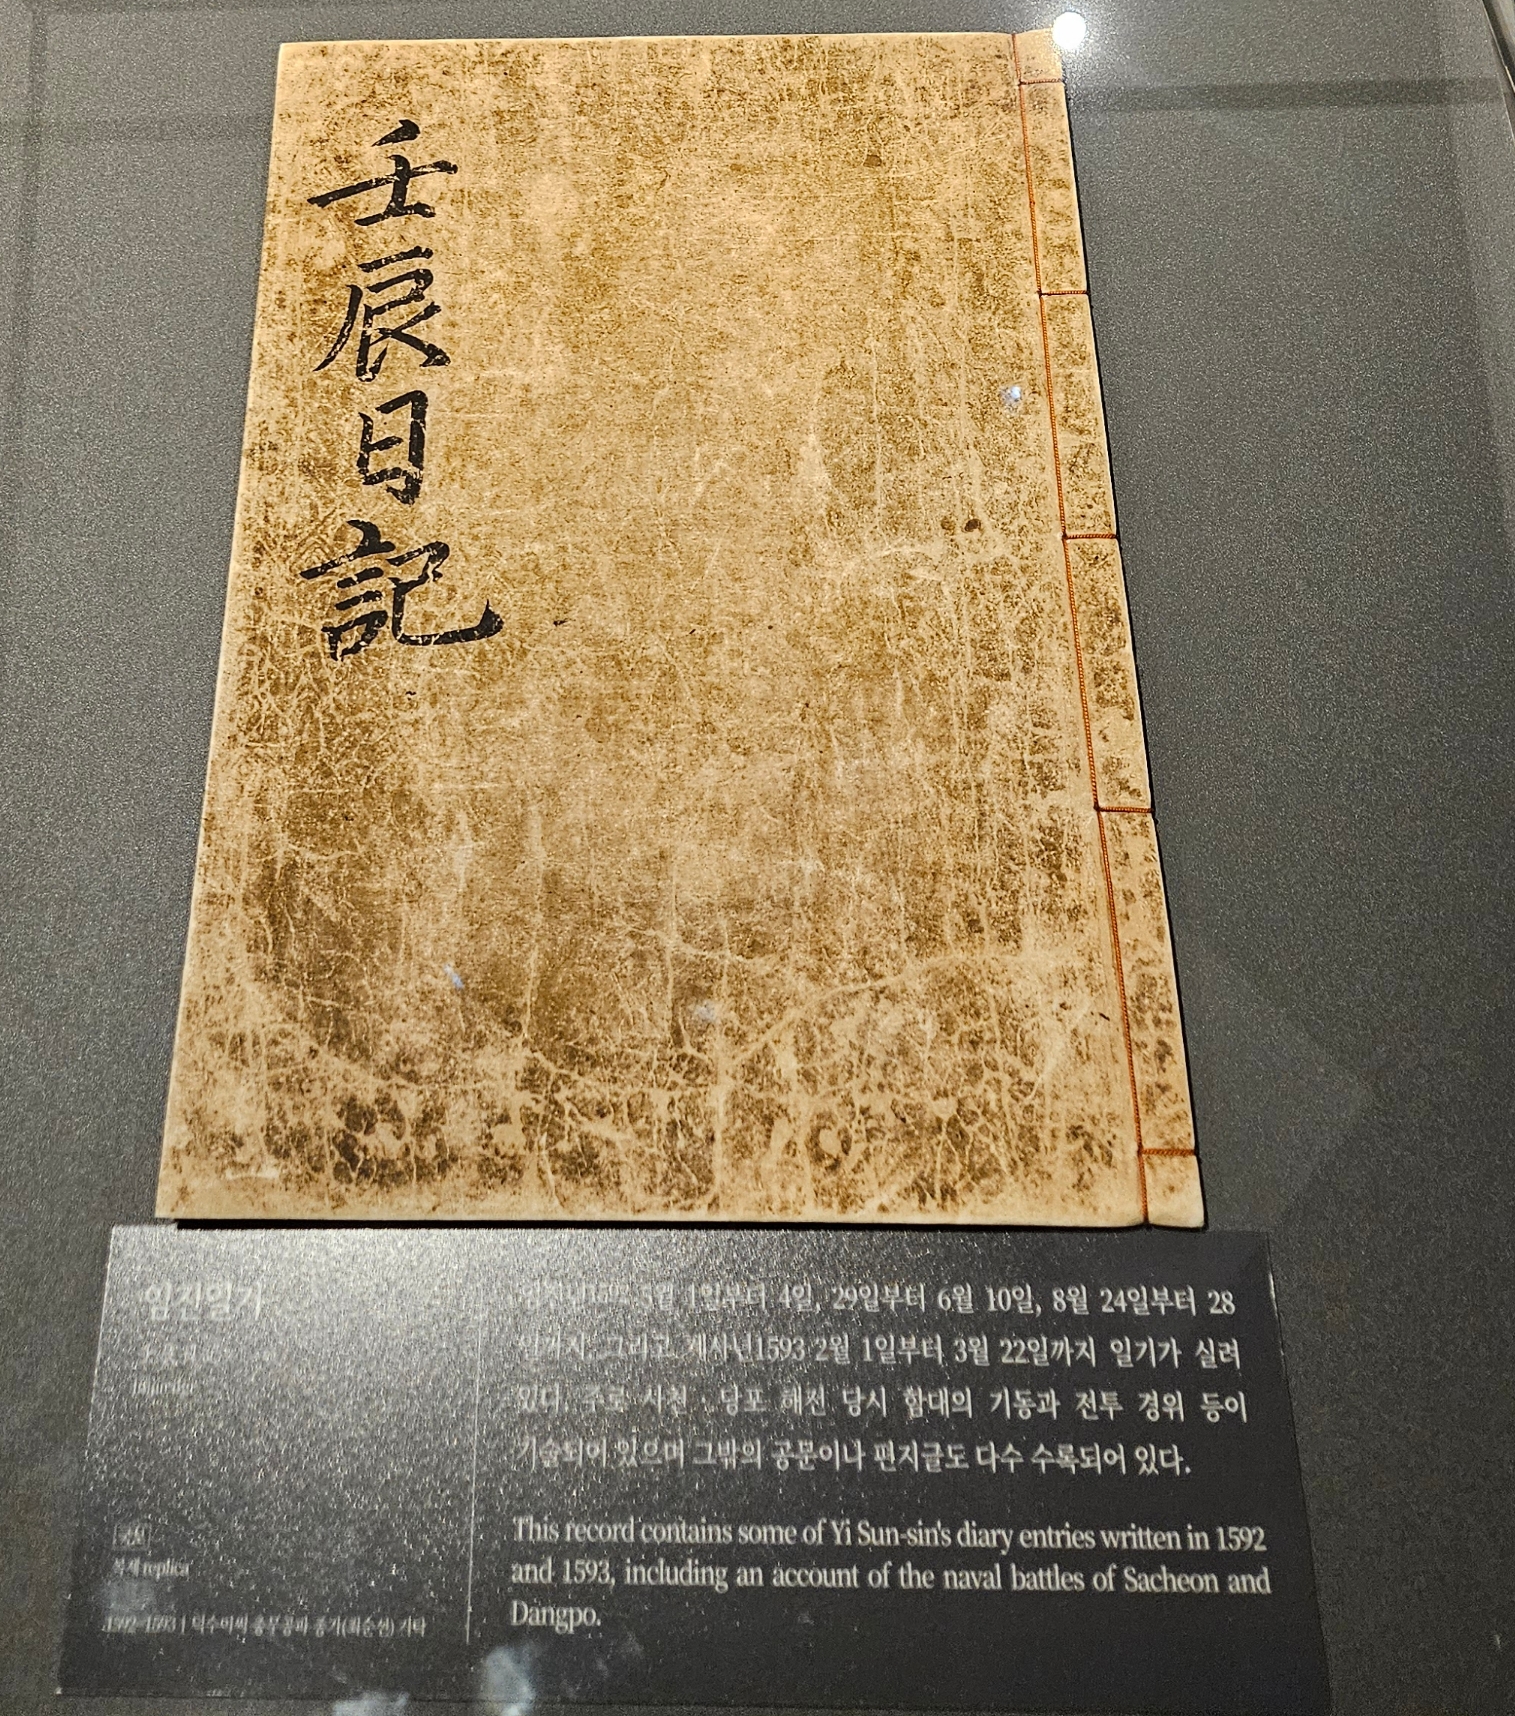 壬辰日記
임진일기
Imjinilgi
5월 1일부터 4일, 29일부터 6월 10일, 8월 24일부터 28
일까지, 그리고 계사년1593 2월 1일부터 3월 22일까지 일기가 실려
있다. 주로 사천 · 당포 해전 당시 함대의 기동과 전투 경위 등이
기술되어 있으며 그밖의 공문이나 편지글도 다수 수록되어 있다.
국보
복제 replica
1592-1593 | 덕수이씨 충무공파 종가(최순선) 기탁
This record contains some of Yi Sun-sin's diary entries written in 1592
and 1593, including an account of the naval battles of Sacheon and
Dangpo.